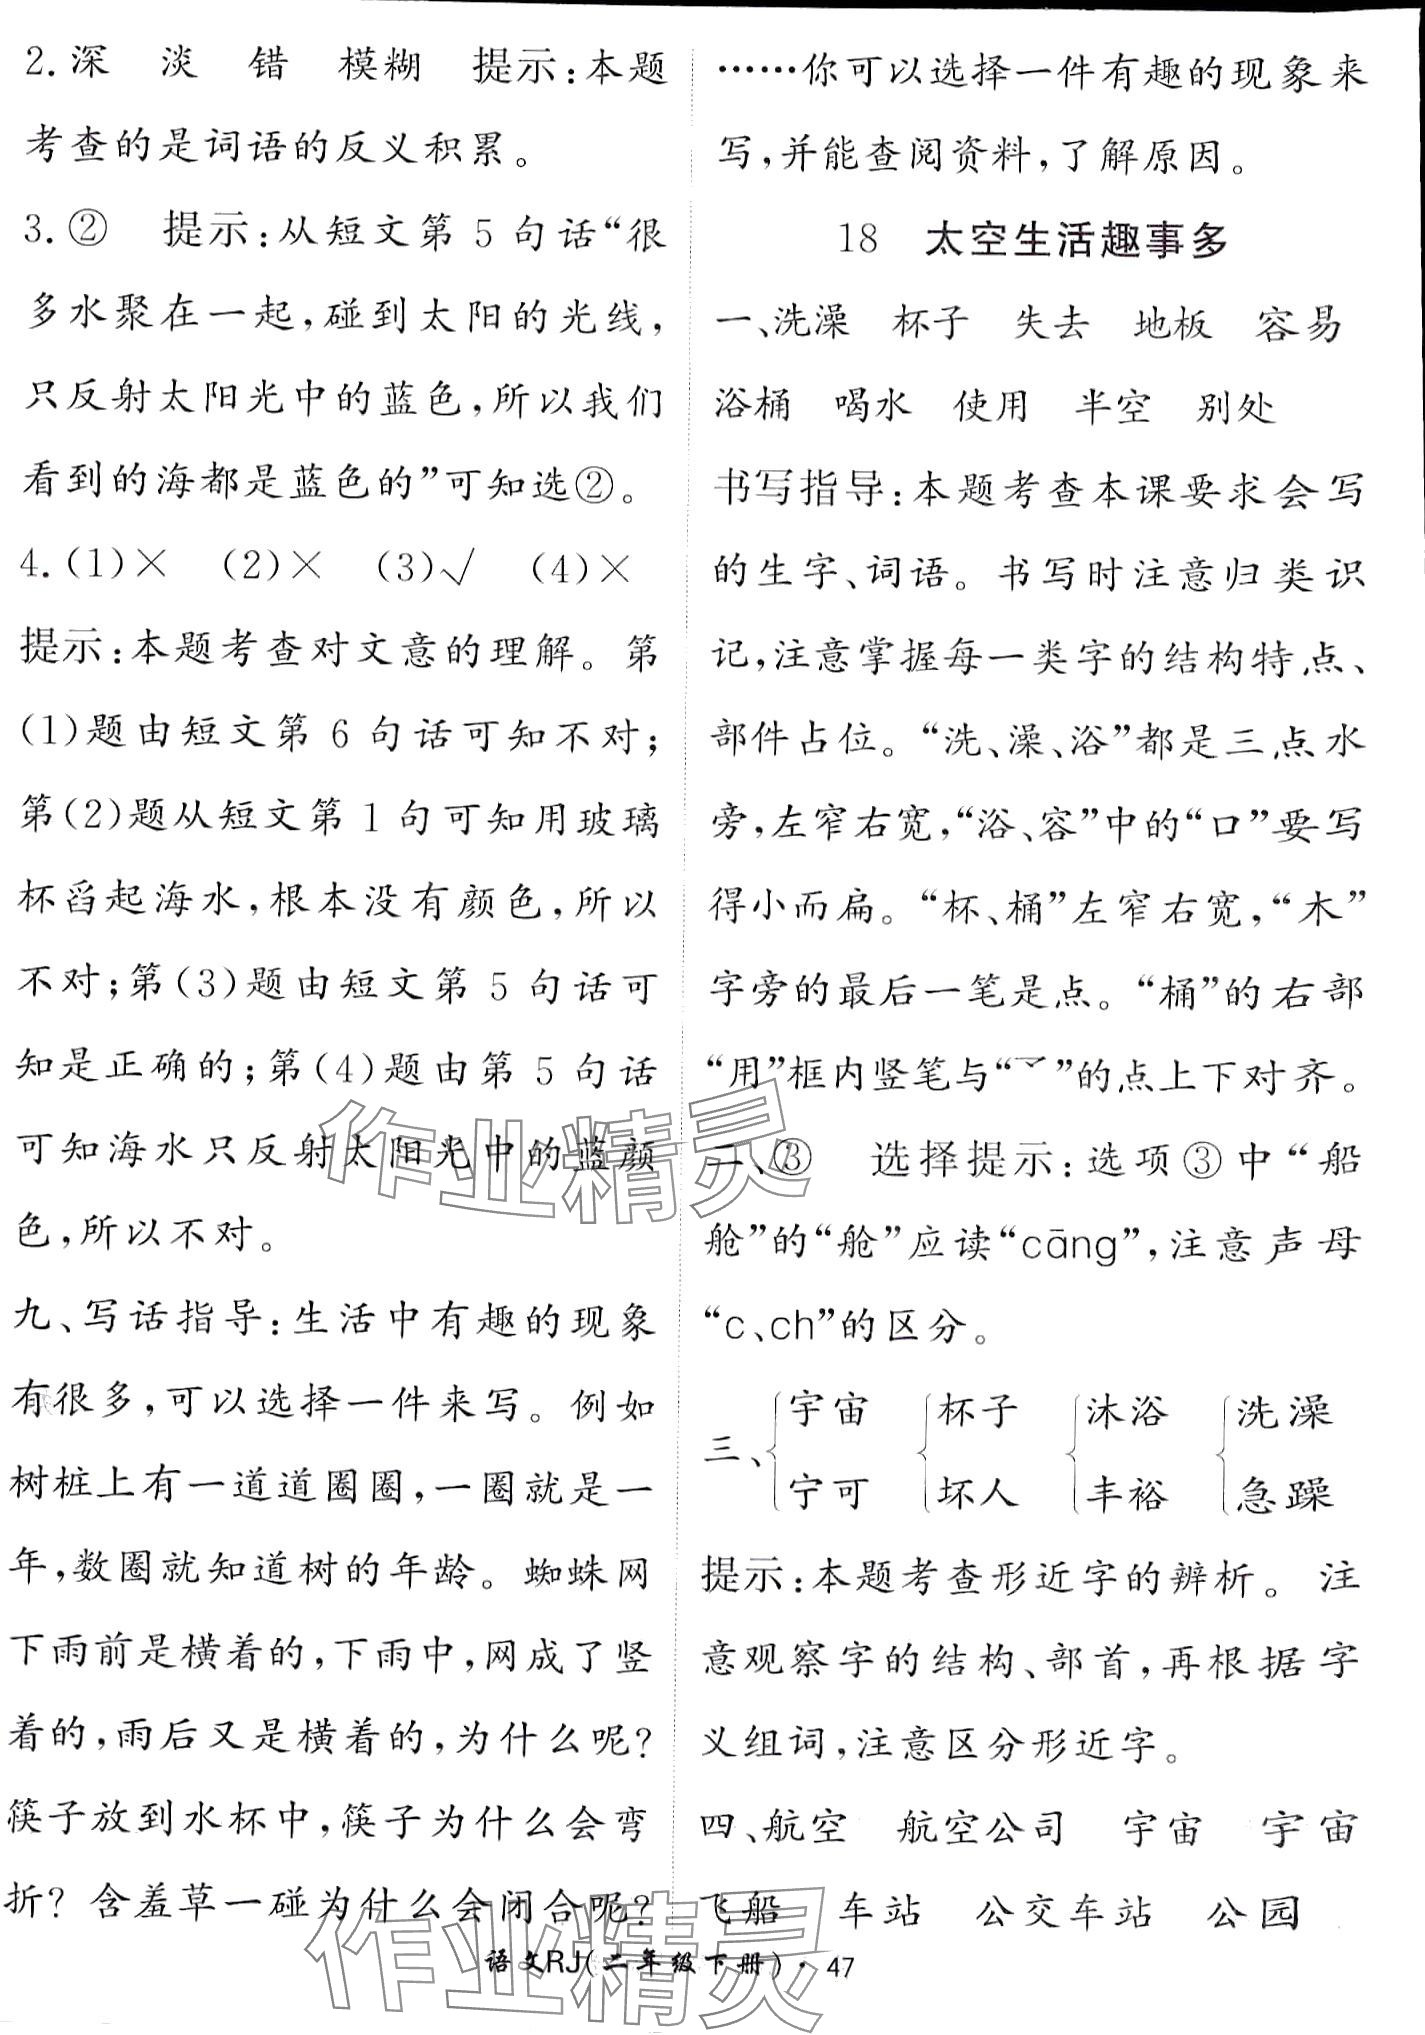 2.深 淡 错 模糊 提示:本题
考查的是词语的反义积累。
3.② 提示:从短文第 5 句话“很
多水聚在一起,碰到太阳的光线,
只反射太阳光中的蓝色,所以我们
看到的海都是蓝色的”可知选②。
4.(1)× (2)× (3)√ (4)×
提示:本题考查对文意的理解。第
(1)题由短文第 6 句话可知不对;
第(2)题从短文第 1 句可知用玻璃
杯舀起海水,根本没有颜色,所以
不对;第(3)题由短文第 5 句话可
知是正确的;第(4)题由第 5 句话
可知海水只反射太阳光中的蓝颜
色,所以不对。
九、写话指导:生活中有趣的现象
有很多,可以选择一件来写。例如
树桩上有一道道圈圈,一圈就是一
年,数圈就知道树的年龄。蜘蛛网
下雨前是横着的,下雨中,网成了竖
着的,雨后又是横着的,为什么呢?
筷子放到水杯中,筷子为什么会弯
折? 含羞草一碰为什么会闭合呢?
……你可以选择一件有趣的现象来
写,并能查阅资料,了解原因。
18 太空生活趣事多
一、洗澡 杯子 失去 地板 容易
浴桶 喝水 使用 半空 别处
书写指导:本题考查本课要求会写
的生字、词语。书写时注意归类识
记,注意掌握每一类字的结构特点、
部件占位。“洗、澡、浴”都是三点水
旁,左窄右宽,“浴、容”中的“口”要写
得小而扁。“杯、桶”左窄右宽,“木”
字旁的最后一笔是点。“桶”的右部
“用”框内竖笔与“乛”的点上下对齐。
二、③ 选择提示:选项③中“船
舱”的“舱”应读“cāng”,注意声母
“c、ch”的区分。
三、{宇宙 {杯子 {沐浴 {洗澡
宁可 坏人 丰裕 急躁
提示:本题考查形近字的辨析。注
意观察字的结构、部首,再根据字
义组词,注意区分形近字。
四、航空 航空公司 宇宙 宇宙
飞船 车站 公交车站 公园
语文RJ(二年级下册)·47
作业精灵
作业精灵